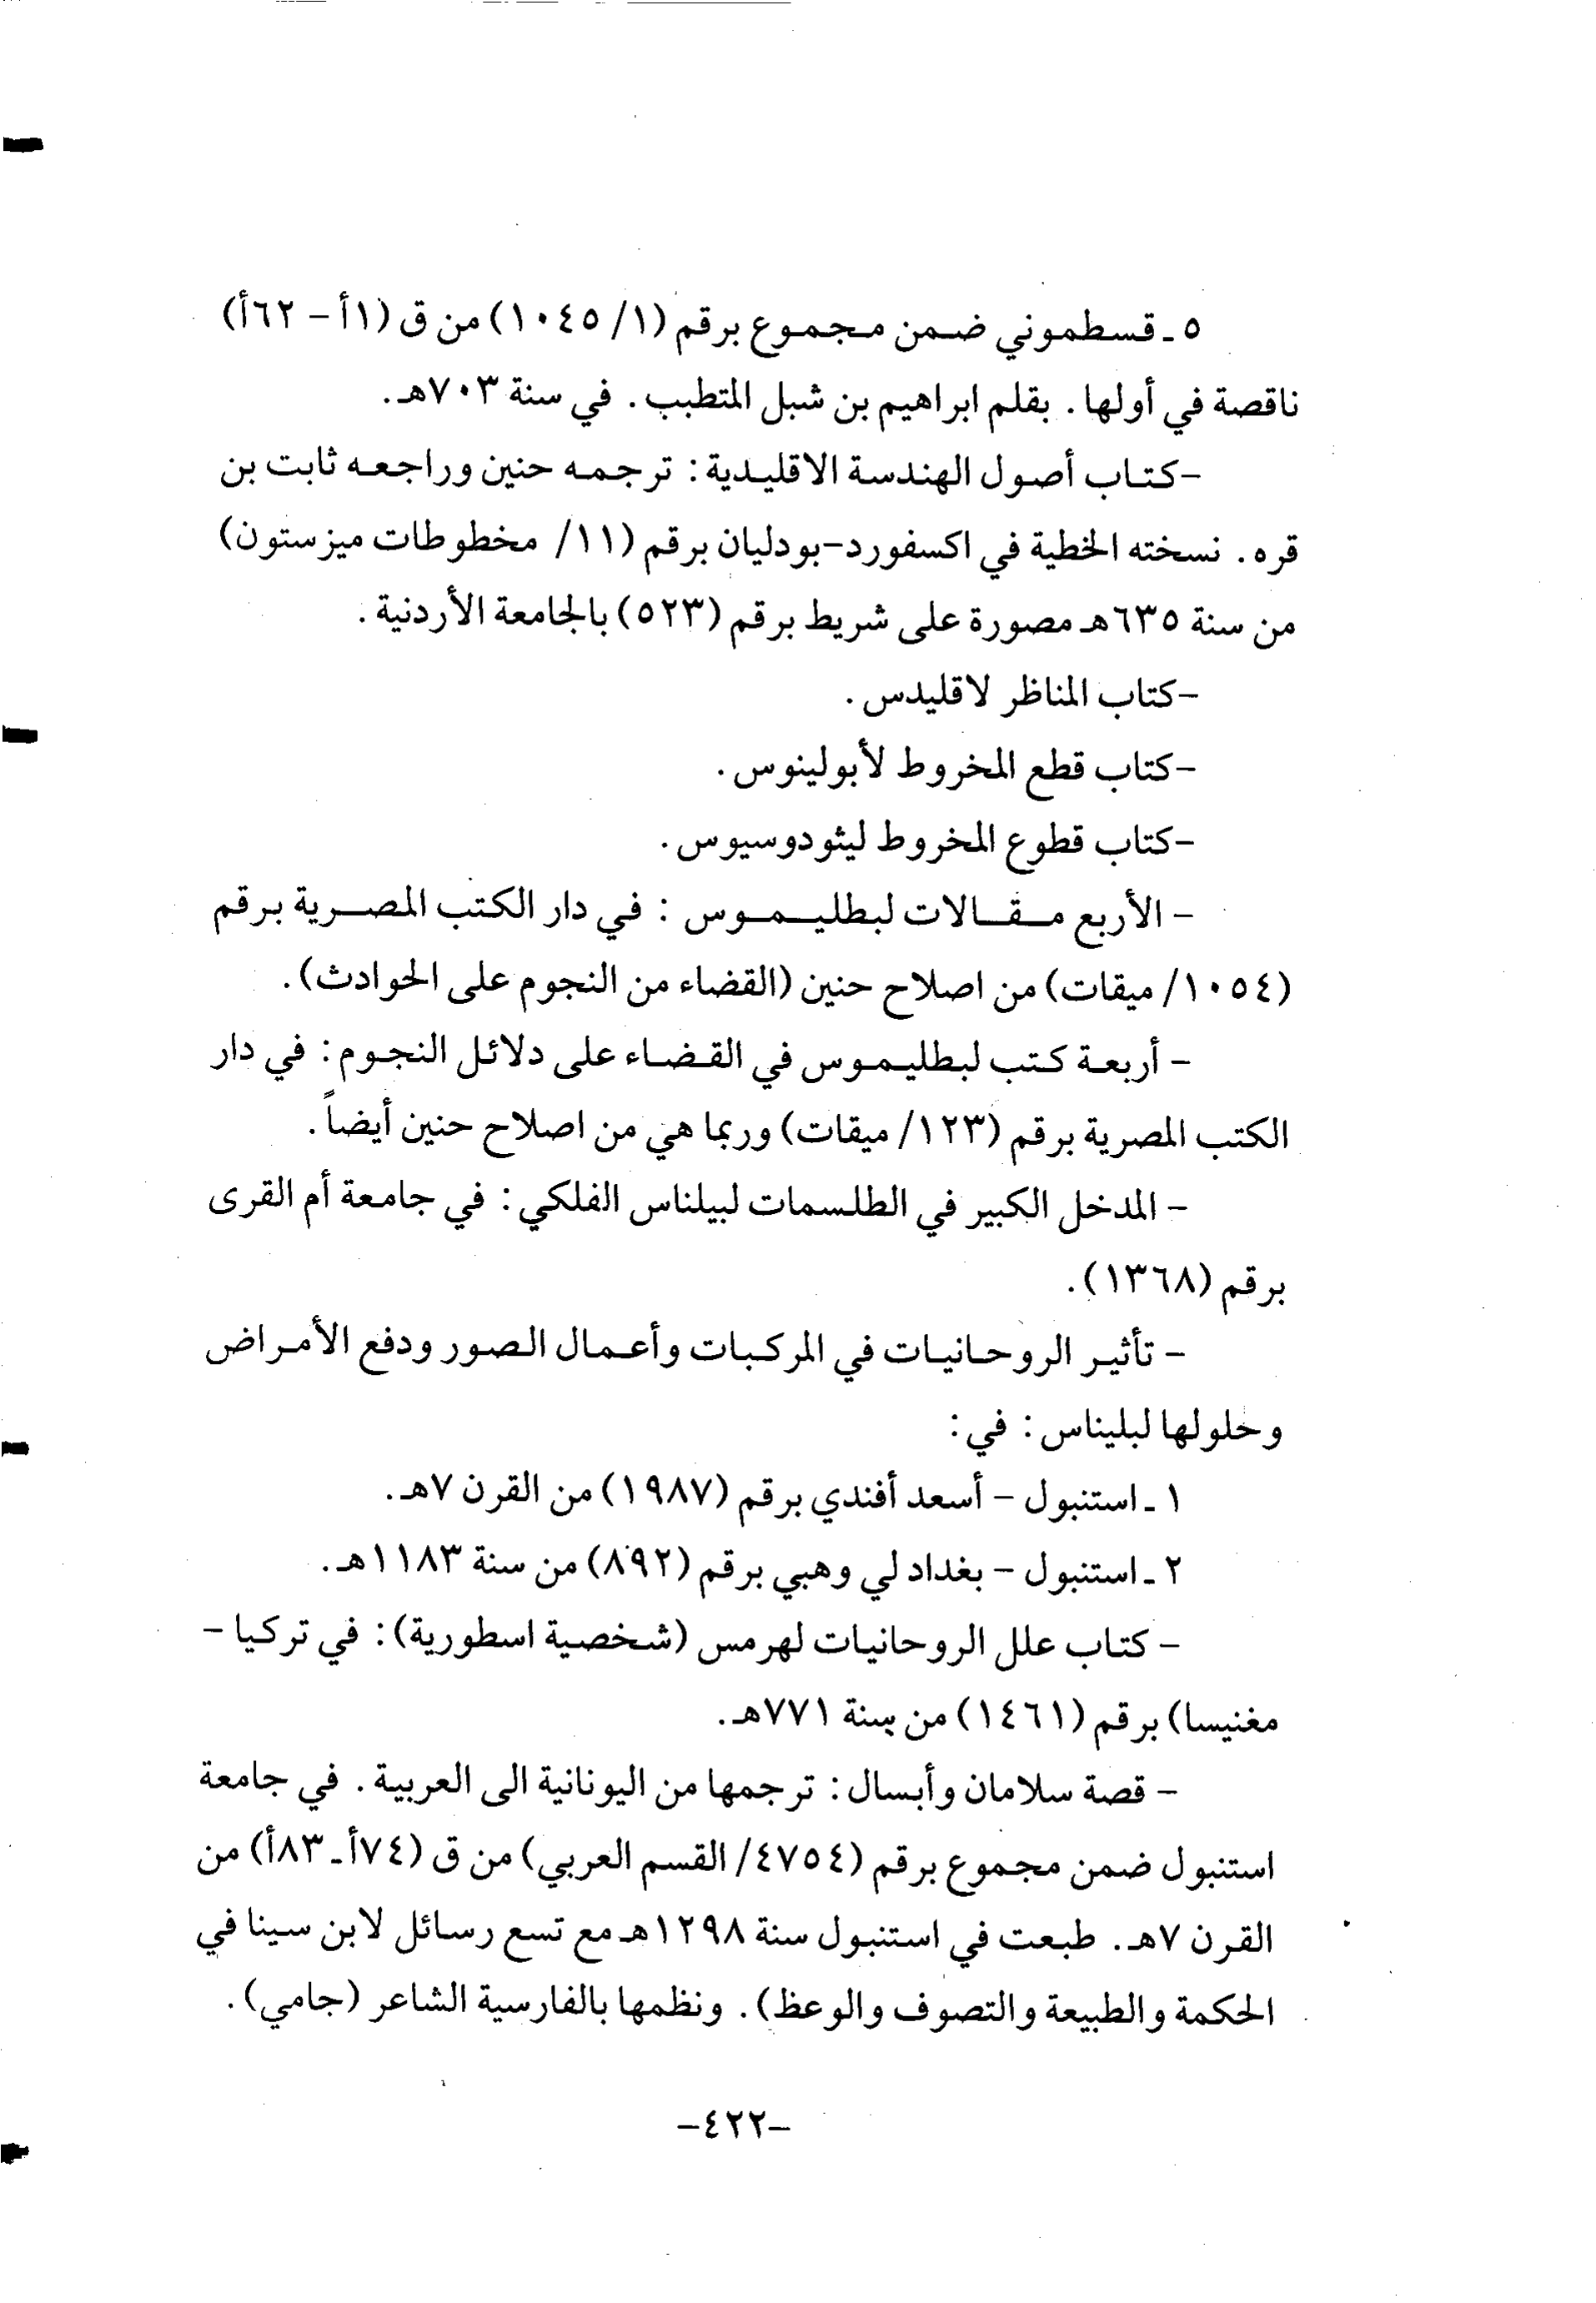 ٥ ـ قسطموني ضمن مجموع برقم (١/ ١٠٤٥) من ق (١أ – ٦٢أ)
ناقصة في أولها. بقلم ابراهيم بن شبل المتطبب. في سنة ٧٠٣هـ.
–كتاب أصول الهندسة الاقليدية: ترجمه حنين وراجعه ثابت بن
قره. نسخته الخطية في اكسفورد–بودليان برقم (١١/ مخطوطات ميزستون)
من سنة ٦٣٥هـ مصورة على شريط برقم (٥٢٣) بالجامعة الأردنية.
–كتاب المناظر لاقليدس.
–كتاب قطع المخروط لأبولينوس.
–كتاب قطوع المخروط ليثودوسيوس.
– الأربع مقالات لبطليموس : في دار الكتب المصرية برقم
(١٠٥٤/ ميقات) من اصلاح حنين (القضاء من النجوم على الحوادث).
– أربعة كتب لبطليموس في القضاء على دلائل النجوم: في دار
الكتب المصرية برقم (١٢٣/ ميقات) وربما هي من اصلاح حنين أيضاً.
– المدخل الكبير في الطلسمات لبيلناس الفلكي: في جامعة أم القرى
برقم (١٣٦٨).
– تأثير الروحانيات في المركبات وأعمال الصور ودفع الأمراض
وحلولها لبليناس: في:
١ ـ استنبول – أسعد أفندي برقم (١٩٨٧) من القرن ٧هـ.
٢ ـ استنبول – بغداد لي وهبي برقم (٨٩٢) من سنة ١١٨٣هـ.
– كتاب علل الروحانيات لهرمس (شخصية اسطورية): في تركيا –
مغنيسا) برقم (١٤٦١) من سنة ٧٧١هـ.
– قصة سلامان وأبسال: ترجمها من اليونانية الى العربية. في جامعة
استنبول ضمن مجموع برقم (٤٧٥٤/ القسم العربي) من ق (٧٤أ ـ ٨٣أ) من
القرن ٧هـ. طبعت في استنبول سنة ١٢٩٨هـ مع تسع رسائل لابن سينا في
الحكمة والطبيعة والتصوف والوعظ). ونظمها بالفارسية الشاعر (جامي).
–٤٢٢–